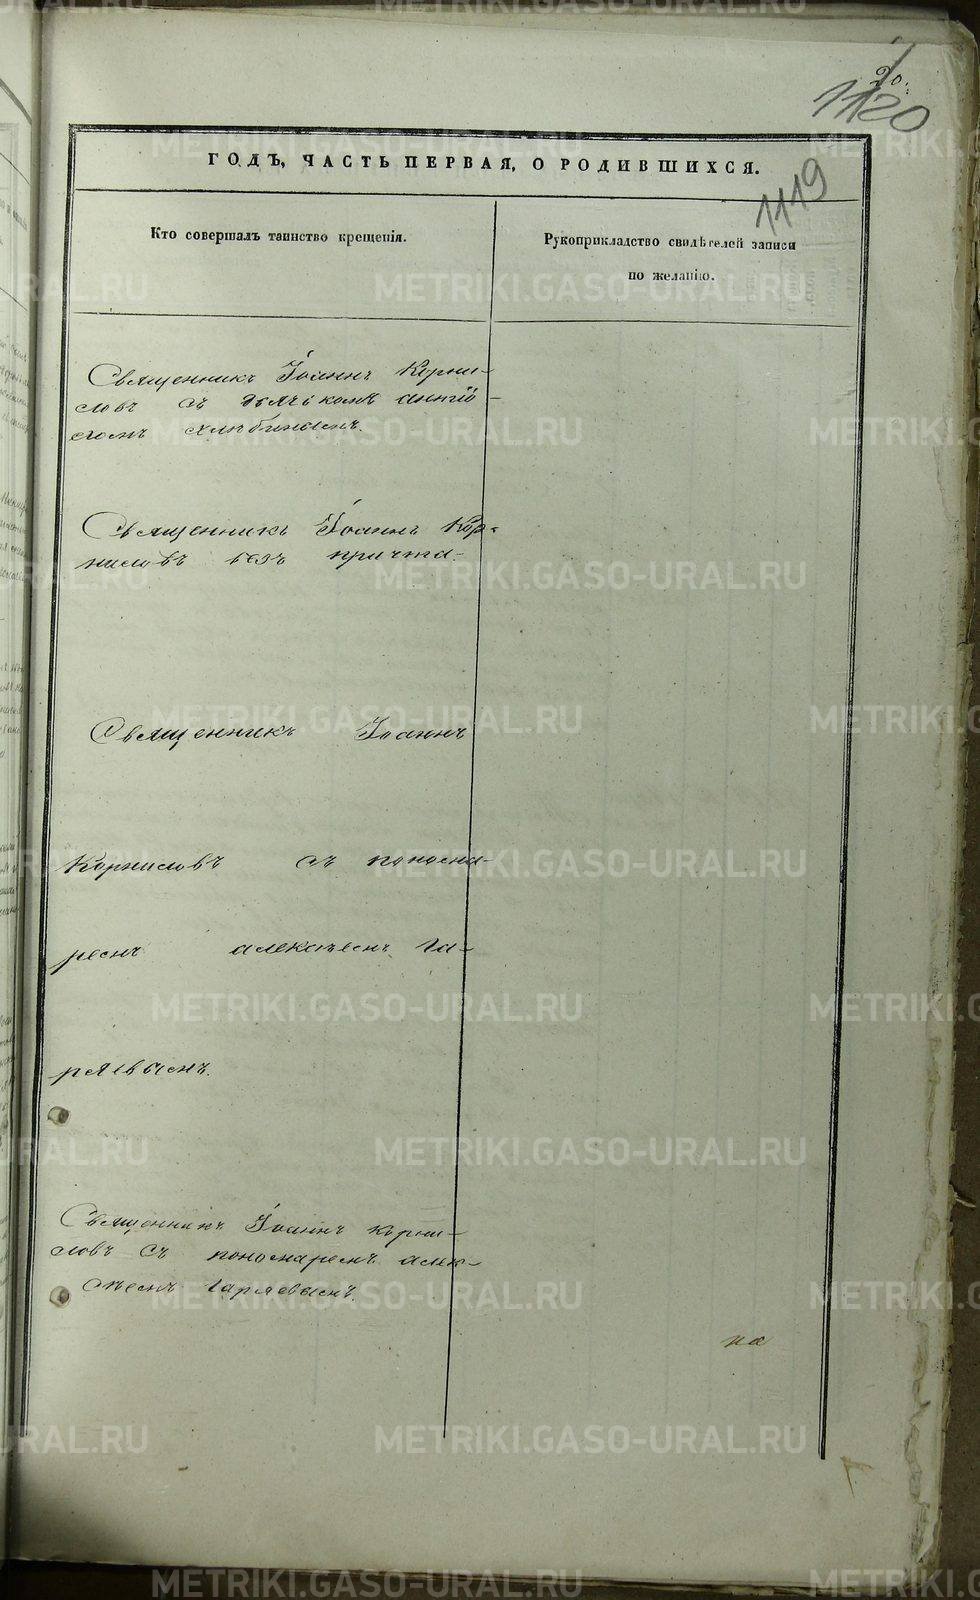 20.
1120
ГОДЪ, ЧАСТЬ ПЕРВАЯ, О РОДИВШИХСЯ.
1119
Кто совершалъ таинство крещенія.
Рукоприкладство свидѣтелей записи
по желанію.
Священникъ Іоаннъ Корни-
словъ съ дьячькомъ
Священникъ Іоаннъ Кор-
нисловъ безъ причта.
Священникъ Іоаннъ
Корнисловъ съ понома-
ремъ Алексѣемъ Га-
ряевымъ.
Священникъ Іоаннъ Корни-
словъ съ пономаремъ Алек-
сѣемъ Гаряевымъ.
на
METRIKI.GASO-URAL.RU